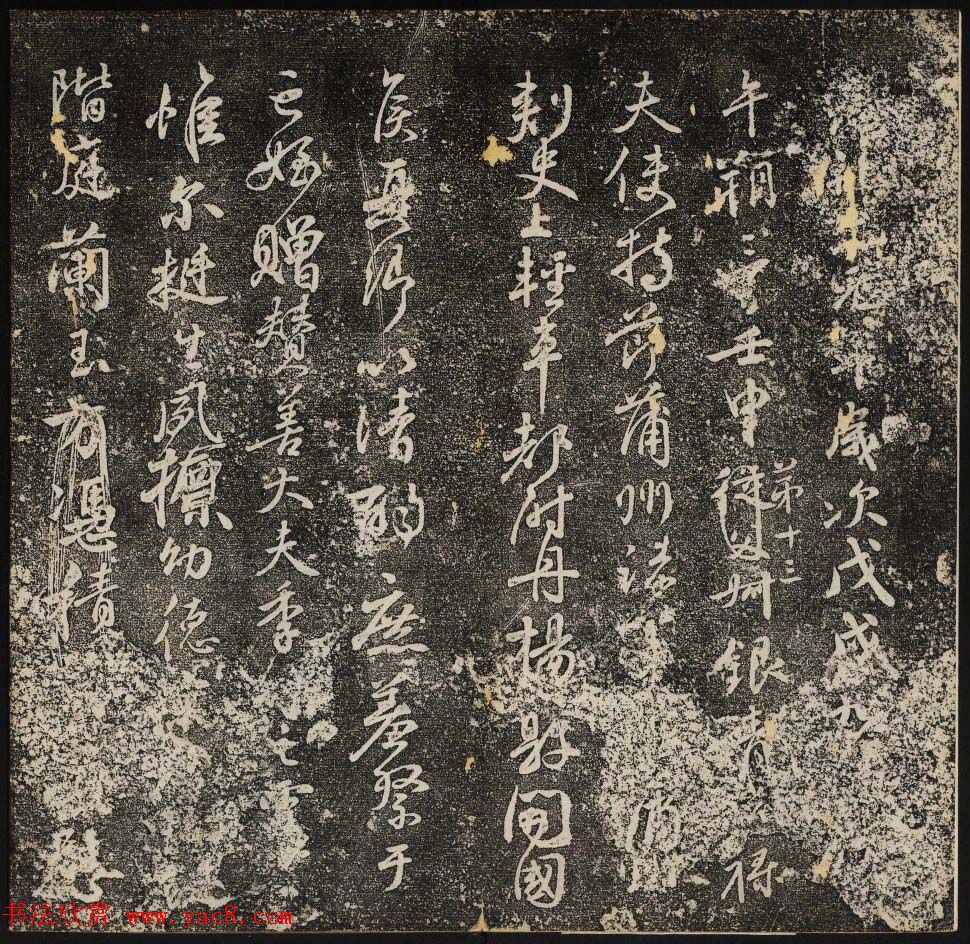 元年歲次戊戌九
午朔三日壬申從父銀青祿
第十三
夫使持節蒲州諸軍蒲
刺史上輕車都尉丹楊縣開國
侯真卿以清酌庶羞祭于
亡姪贈贊善大夫季之靈
惟爾挺生夙標幼德
階庭蘭玉方憑積慰
书法欣赏 www.yac8.com